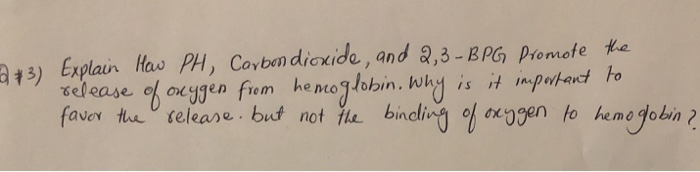 Q#3) Explain How PH, Carbondioxide, and 2,3-BPG Promote the
release of oxygen from hemoglobin. Why is it important to
favor the release. but not the binding of oxygen to hemoglobin?